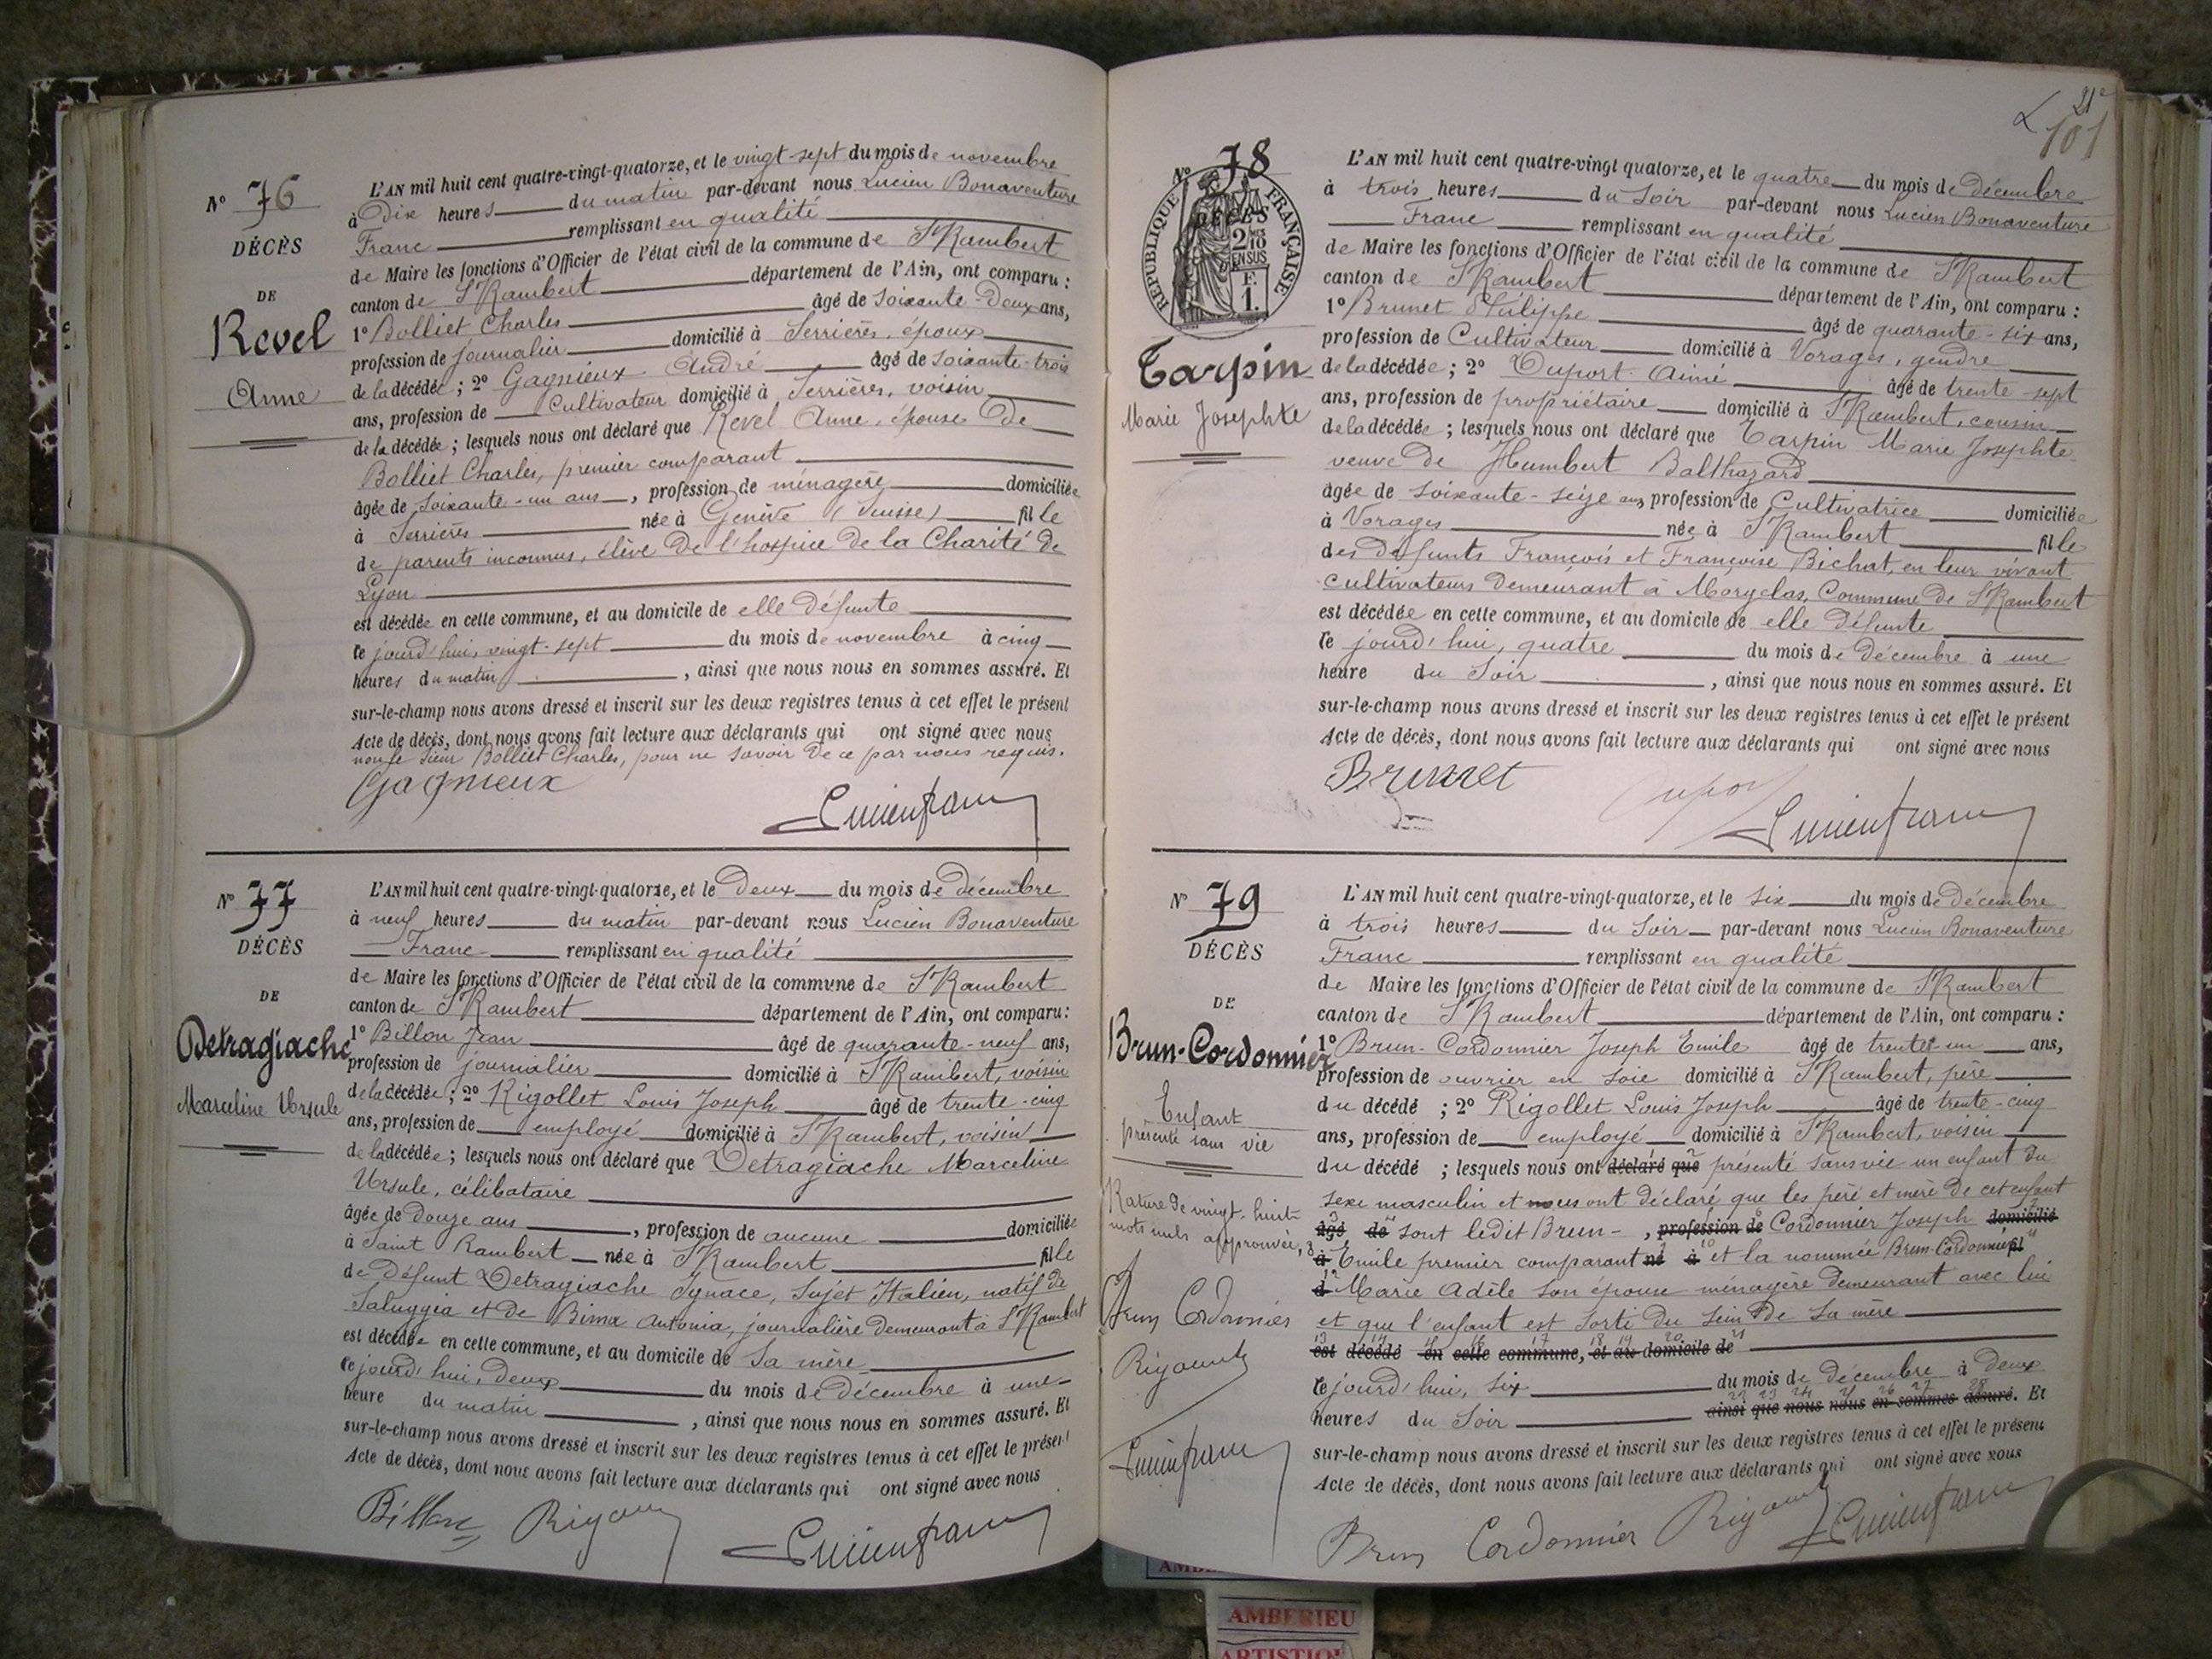 Nº 76
DÉCÈS
DE
Revel
Anne
L'AN mil huit cent quatre-vingt-quatorze, et le vingt-sept du mois de novembre
à Dix heures du matin par-devant nous Lucien Bonaventure
Franc remplissant en qualité
de Maire les fonctions d'Officier de l'état civil de la commune de St Rambert
canton de St Rambert département de l'Ain, ont comparu :
1º Bolliet Charles âgé de soixante-Deux ans,
profession de journalier domicilié à Serrières, époux
de la décédée ; 2º Gagnieux André âgé de soixante-trois
ans, profession de Cultivateur domicilié à Serrières, voisin
de la décédée ; lesquels nous ont déclaré que Revel Anne, épouse De
Bolliet Charles, premier comparant
âgée de soixante-un ans, profession de ménagère domiciliée
à Serrières née à Genève (Suisse) fille
de parents inconnus, élève De l'hospice De la Charité de
Lyon
est décédée en cette commune, et au domicile de elle Défunte
le jourd'hui, vingt-sept du mois de novembre à cinq
heures du matin, ainsi que nous nous en sommes assuré. Et
sur-le-champ nous avons dressé et inscrit sur les deux registres tenus à cet effet le présent
Acte de décès, dont nous avons fait lecture aux déclarants qui ont signé avec nous
non le sieur Bolliet Charles, pour ne savoir De ce par nous requis.
Gagnieux
Lucien franc
Nº 77
DÉCÈS
DE
Detragiache
Marceline Ursule
L'AN mil huit cent quatre-vingt-quatorze, et le Deux du mois de Décembre
à neuf heures du matin par-devant nous Lucien Bonaventure
Franc remplissant en qualité
de Maire les fonctions d'Officier de l'état civil de la commune de St Rambert
canton de St Rambert département de l'Ain, ont comparu :
1º Billon Jean âgé de quarante-neuf ans,
profession de journalier domicilié à St Rambert, voisin
de la décédée ; 2º Rigollet Louis Joseph âgé de trente-cinq
ans, profession de employé domicilié à St Rambert, voisin
de la décédée ; lesquels nous ont déclaré que Detragiache Marceline
Ursule, célibataire
âgée de Douze ans, profession de aucune domiciliée
à Saint Rambert née à St Rambert fille
de Défunt Detragiache Ignace, Sujet Italien, natif de
Saluggia et de Bima Antonia, journalière demeurant à St Rambert
est décédée en cette commune, et au domicile de Sa mère
le jourd'hui, Deux du mois de Décembre à une
heure du matin, ainsi que nous nous en sommes assuré. Et
sur-le-champ nous avons dressé et inscrit sur les deux registres tenus à cet effet le présent
Acte de décès, dont nous avons fait lecture aux déclarants qui ont signé avec nous
Billon
Lucien franc
21e
101
Nº 78
RÉPUBLIQUE FRANÇAISE
2/10 EN SUS
F. 1.
DÉCÈS
Tarpin
Marie Josephte
L'AN mil huit cent quatre-vingt quatorze, et le quatre du mois de Décembre
à trois heures du Soir par-devant nous Lucien Bonaventure
Franc remplissant en qualité
de Maire les fonctions d'Officier de l'état civil de la commune de St Rambert
canton de St Rambert département de l'Ain, ont comparu :
1º Brunet Philippe âgé de quarante-six ans,
profession de Cultivateur domicilié à Vorages, gendre
de la décédée ; 2º Duport Aimé âgé de trente sept
ans, profession de propriétaire domicilié à St Rambert, cousin
de la décédée ; lesquels nous ont déclaré que Tarpin Marie Josephte
veuve de Humbert Balthazard
âgée de soixante-seize ans, profession de Cultivatrice domiciliée
à Vorages née à St Rambert fille
des Défunts François et Françoise Bichat, en leur vivant
cultivateurs Demeurant à Morgelas, Commune De St Rambert
est décédée en cette commune, et au domicile de elle Défunte
le jourd'hui, quatre du mois de Décembre à une
heure du Soir, ainsi que nous nous en sommes assuré. Et
sur-le-champ nous avons dressé et inscrit sur les deux registres tenus à cet effet le présent
Acte de décès, dont nous avons fait lecture aux déclarants qui ont signé avec nous
Brunet
Lucien franc
Nº 79
DÉCÈS
DE
Brun-Cordonnier
Enfant
présenté sans vie
Rature De vingt-huit
mots nuls approuvée,
Brun Cordonnier
Lucien franc
L'AN mil huit cent quatre-vingt-quatorze, et le six du mois de Décembre
à trois heures du Soir par-devant nous Lucien Bonaventure
Franc remplissant en qualité
de Maire les fonctions d'Officier de l'état civil de la commune de St Rambert
canton de St Rambert département de l'Ain, ont comparu :
1º Brun-Cordonnier Joseph Emile âgé de trente-un ans,
profession de ouvrier en soie domicilié à St Rambert, père
du décédé ; 2º Rigollet Louis Joseph âgé de trente-cinq
ans, profession de employé domicilié à St Rambert, voisin
du décédé ; lesquels nous ont déclaré que présenté sans vie un enfant du
sexe masculin et nous ont déclaré que les père et mère de cet enfant
âgé de sont ledit Brun-, profession de Cordonnier Joseph domicilié
à Emile premier comparant né à et la nommée Brun-Cordonnier fil
d Marie Adèle son épouse ménagère demeurant avec lui
et que l'enfant est sorti du sein De sa mère
est décédé en cette commune, et au domicile de
le jourd'hui, six du mois de Décembre à Deux
heures du Soir ainsi que nous nous en sommes assuré. Et
sur-le-champ nous avons dressé et inscrit sur les deux registres tenus à cet effet le présent
Acte de décès, dont nous avons fait lecture aux déclarants qui ont signé avec nous
Brun Cordonnier
Lucien franc
AMBERIEU
ARTISTIQUE